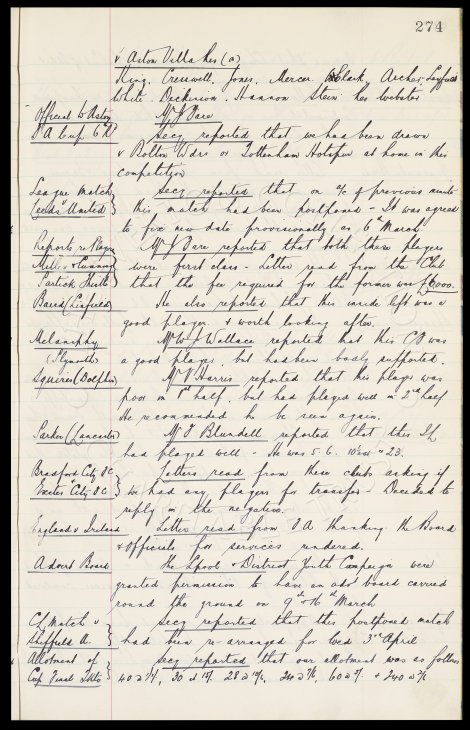 274
v Aston Villa Res (a)
King, Cresswell, Jones, Mercer, Clark, Archer, Leyfield
White, Dickinson, Hannon, Stein. Res Webster
Official to Aston Mr J Dare
F A Cup 6th R Secy reported that we had been drawn
v Bolton Wdrs or Tottenham Hotspur at home in this
competition
League Match Secy reported that on a/c of previous minute
Leeds United this match had been postponed - It was agreed
to fix new date provisionally as 6th March.
Reports re Players Mr J Dare reported that both these players
Mills & Cunning were first class - Letter read from the Club
Partick Thistle that the fee required for the former was £6,000.
Baird (Linfield) He also reported that this inside left was a
good player & worth looking after.
Melaniphy Mr W J Wallace reported that this CF was
(Plymouth) a good player but had been badly supported.
Squires (Dolphin) Mr V Harris reported that this player was
poor in 1st half, but had played well in 2nd half
He recommended he be seen again.
Parker (Lancaster) Mr F Blundell reported that this
had played well - He was 5.6. 23.
Bradford City FC Letters read from these clubs asking if
Exeter City FC we had any players for transfer - Decided to
reply in the negative.
England v Ireland Letter read from FA thanking the Board
& Officials for services rendered.
Advert Board The Lpool & District Youth Campaign were
granted permission to have an advt board carried
round the ground on 9th & 16th March
Ch Match v Secy reported that this postponed match
Sheffield A. had been re-arranged for Wed 3rd April
Allotment of Secy reported that our allotment was as follows
Cup Final Tkts